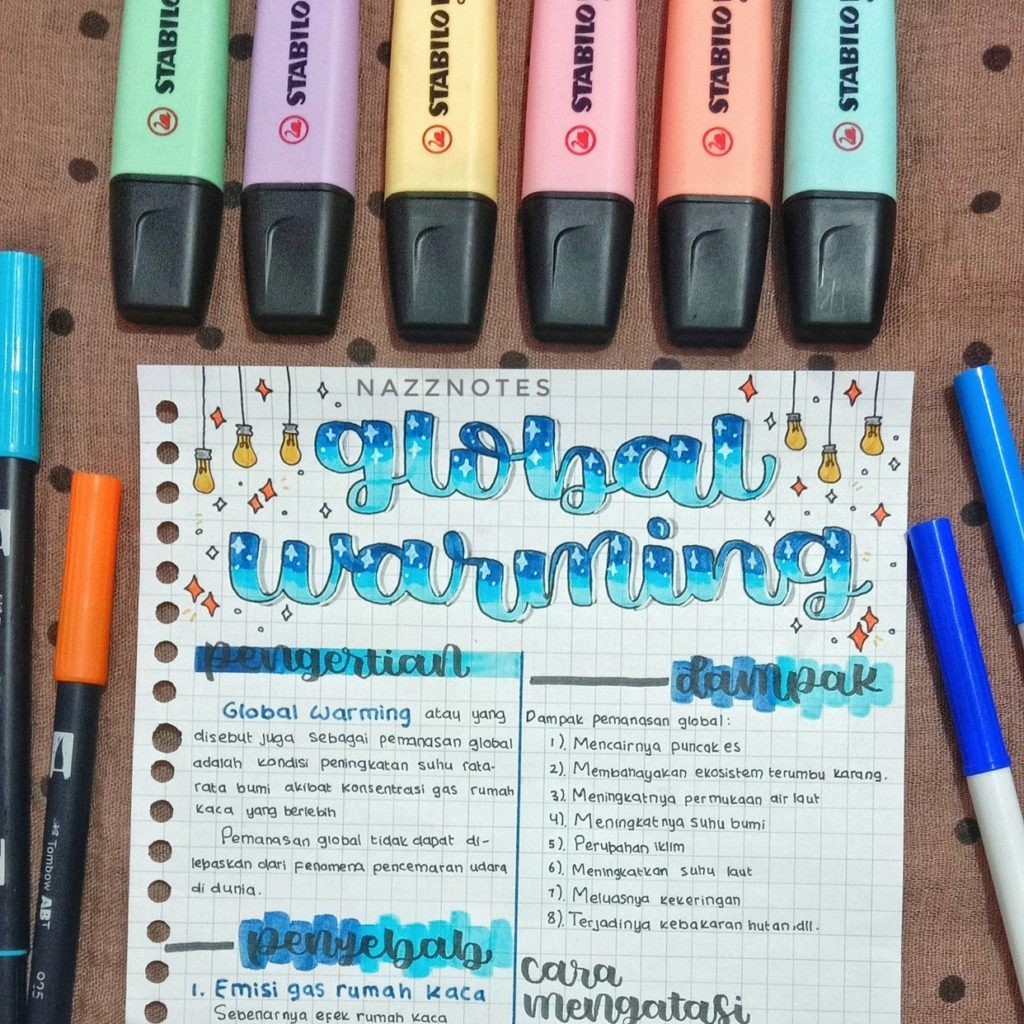 STABILO
STABILO
STABILO
STABILO
STABILO
STABILO
NAZZNOTES
global
warming
pengertian
Global Warming atau yang
disebut juga sebagai pemanasan global
adalah kondisi peningkatan suhu rata-
rata bumi akibat konsentrasi gas rumah
kaca yang berlebih
Pemanasan global tidak dapat di-
lepaskan dari fenomena pencemaran udara
di dunia.
penyebab
1. Emisi gas rumah kaca
Sebenarnya efek rumah kaca
dampak
Dampak pemanasan global:
1). Mencairnya puncak es
2). Membahayakan ekosistem terumbu karang.
3). Meningkatnya permukaan air laut
4). Meningkatnya suhu bumi
5). Perubahan iklim
6). Meningkatkan suhu laut
7). Meluasnya kekeringan
8). Terjadinya kebakaran hutan, dll.
cara
mengatasi
Tombow ABT